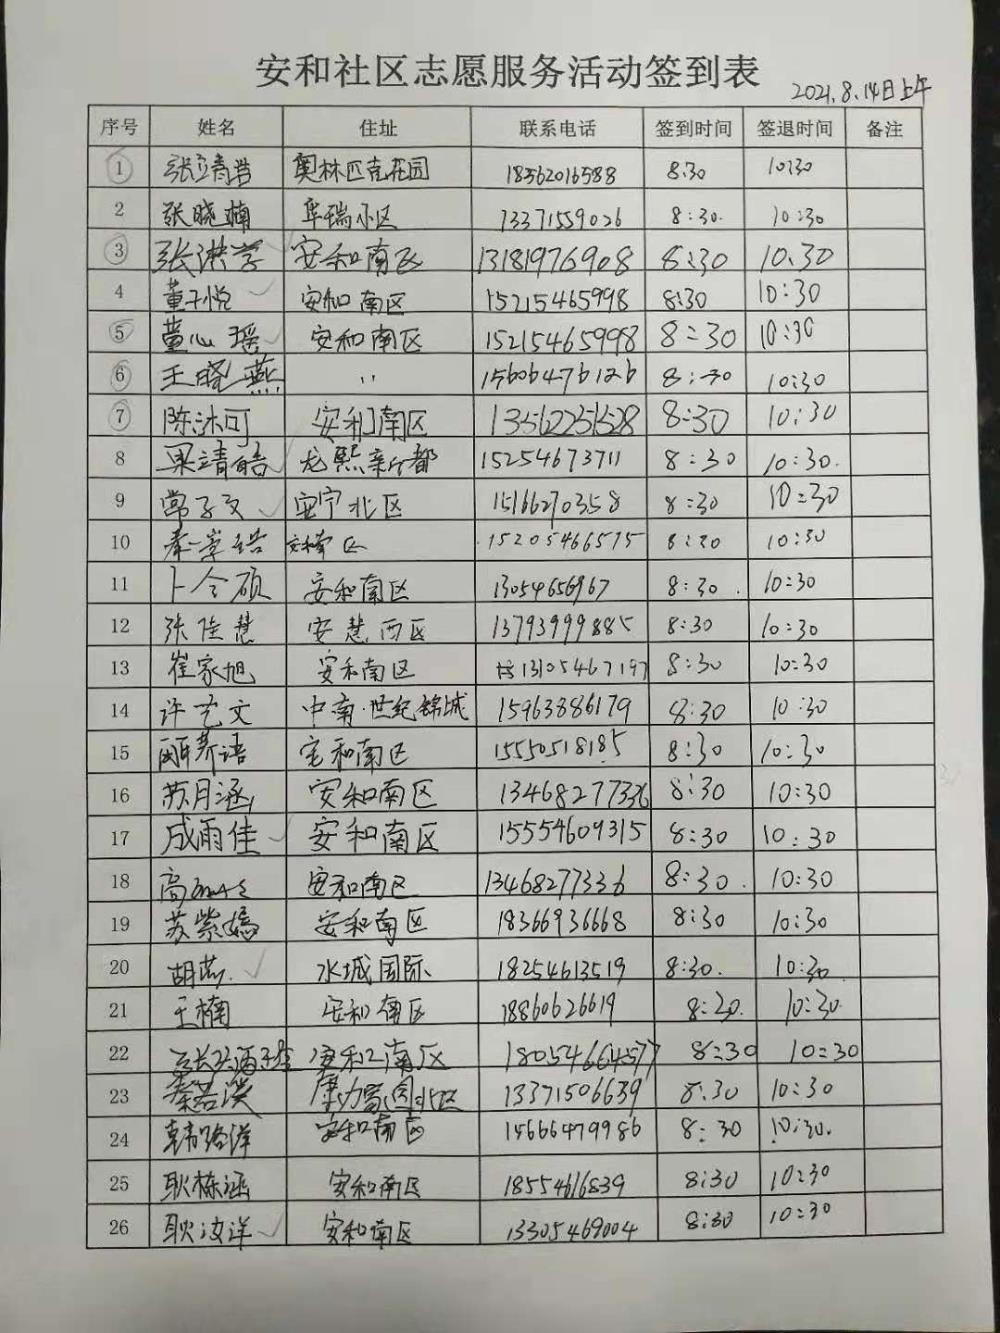 安和社区志愿服务活动签到表
2021.8.14日上午
序号 姓名 住址 联系电话 签到时间 签退时间 备注
1 张靖浩 奥林匹克花园 18562016588 8:30 10:30
2 张晓楠 阜瑞小区 13371559026 8:30. 10:30
3 张洪学 安和南区 13181976908 8:30 10.30
4 董子悦 安和南区 15215465998 8:30 10:30
5 董心瑶 安和南区 15215465998 8:30 10:30
6 王晓燕 〃 15606476126 8:30 10:30
7 陈沐可 安和南区 13562251528 8:30 10:30
8 梁靖皓 龙熙新都 15254673711 8:30 10:30.
9 常子文 安宁北区 15166270358 8:30 10:30
10 安和南区 15205466575 8:30 10:30
11 卜令硕 安和南区 13054656967 8:30. 10:30
12 张佳慧 安慧西区 13793999885 8:30 10:30
13 崔家旭 安和南区 13105467197 8:30 10:30
14 许艺文 中南·世纪锦城 15963886179 8:30 10:30
15 安和南区 15550518185 8:30 10:30
16 苏月涵 安和南区 13468277336 8:30 10:30
17 成雨佳 安和南区 15554609315 8:30 10:30
18 高 安和南区 13468277336 8:30. 10:30
19 苏紫嫣 安和南区 18366936668 8:30 10:30
20 胡燕. 水城国际 18254613519 8:30. 10:30
21 王楠 安和南区 18860626619 8:30. 10:30.
22 安和南区 18054664577 8:30 10:30
23 秦若溪 康力家园北区 13371506639 8:30 10:30
24 韩路洋 安和南区 15666479986 8:30 10:30.
25 耿栋涵 安和南区 18554616839 8:30 10:30
26 耿汶洋 安和南区 13305469004 8:30 10:30